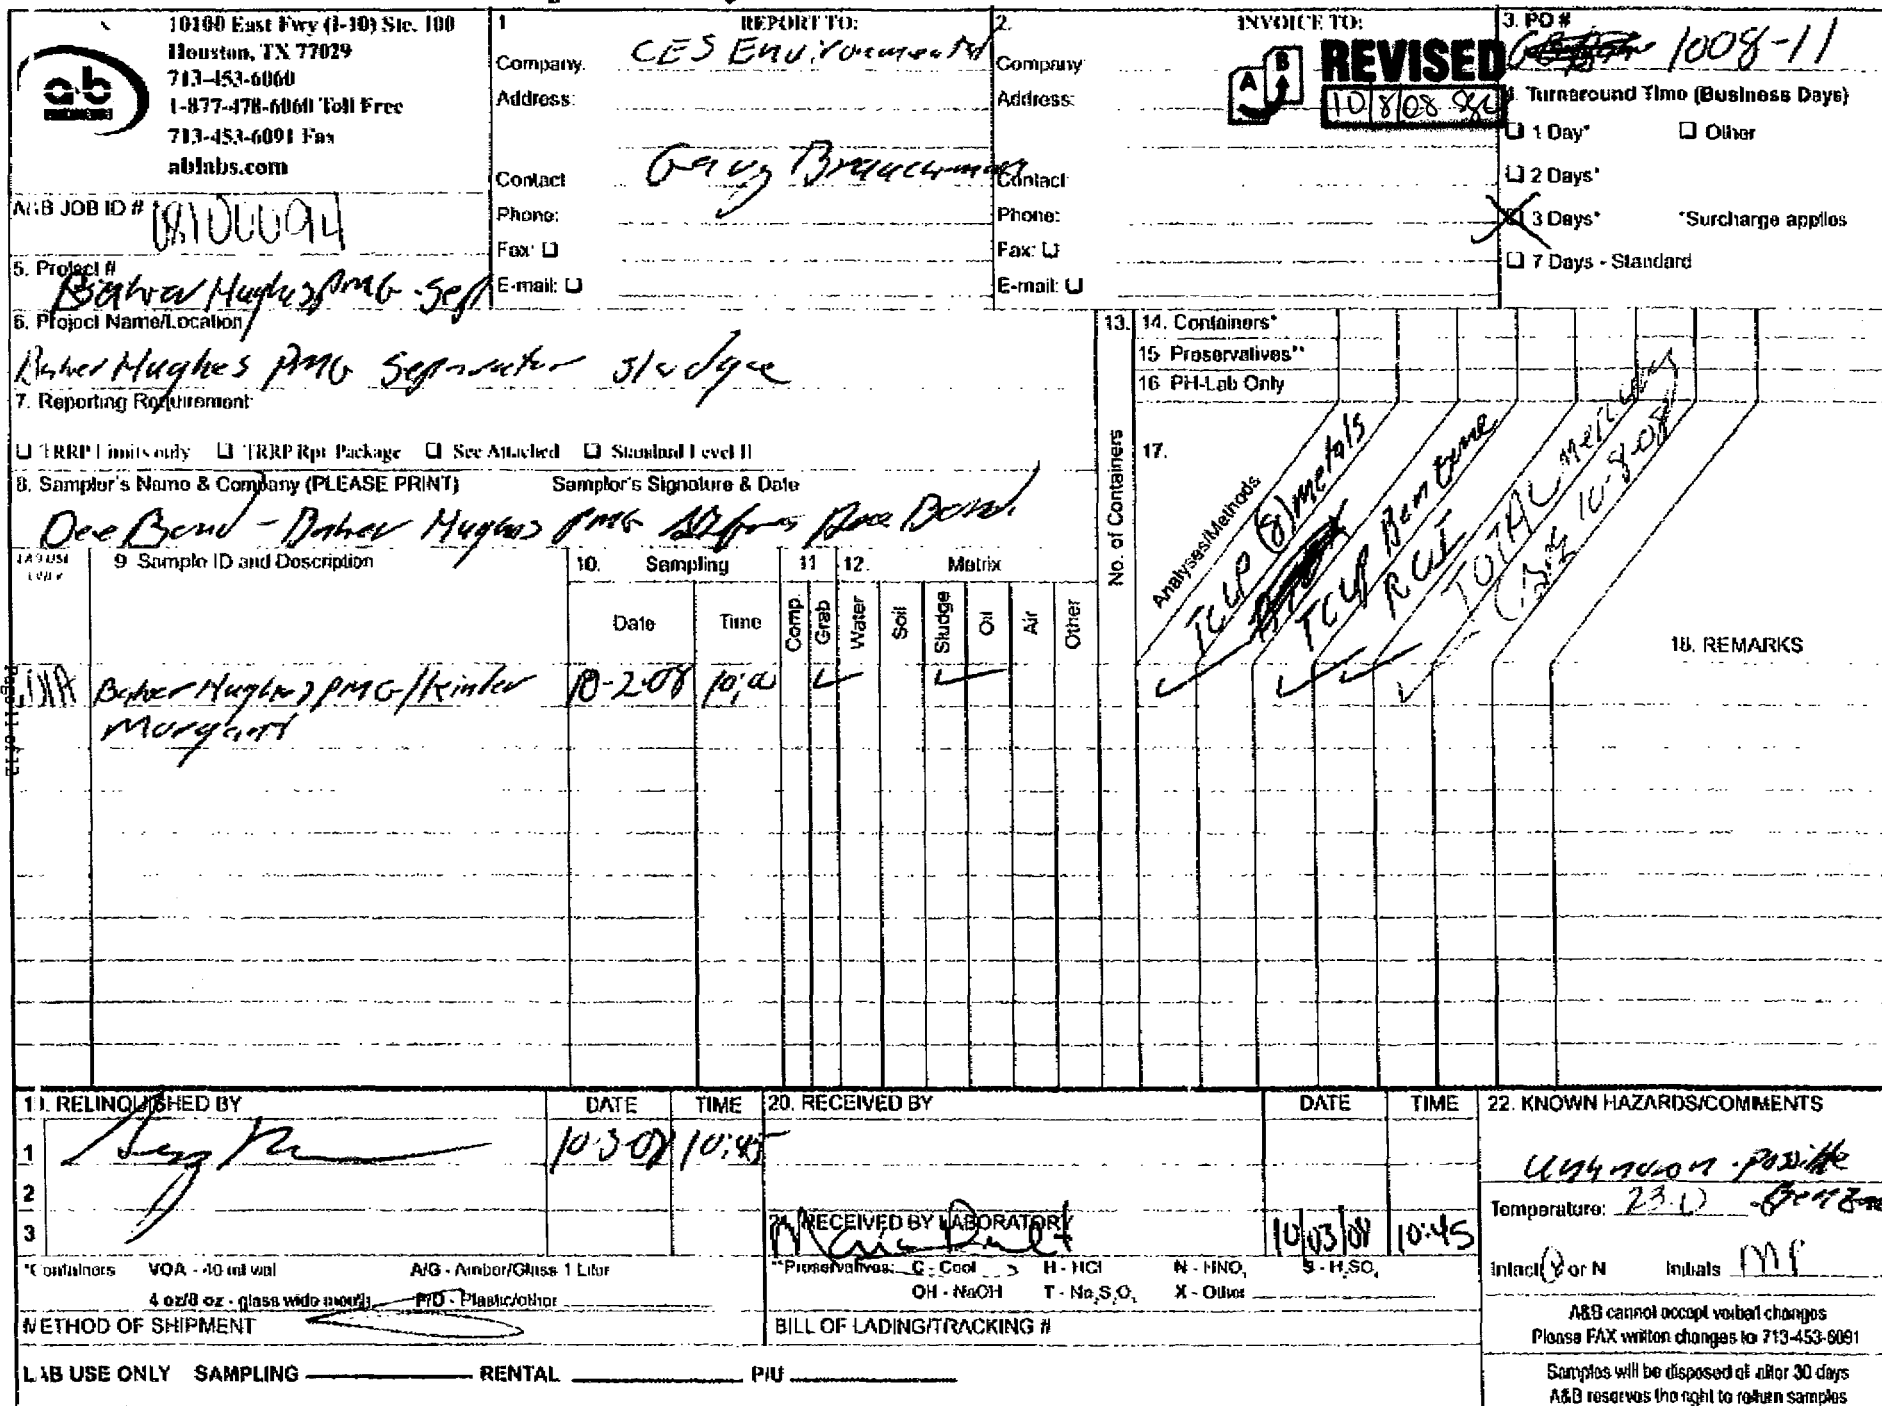 10100 East Fwy (I-10) Ste. 100
Houston, TX 77029
713-453-6060
1-877-478-6060 Toll Free
713-453-6091 Fax
ablabs.com
ab
A&B JOB ID # 08100094
1 REPORT TO:
Company: CES Environmental
Address:
Contact
Phone:
Fax:
E-mail:
2. INVOICE TO:
Company
Address:
Contact
Phone:
Fax:
E-mail:
A B REVISED
10/8/08
3. PO #
1008-11
4. Turnaround Time (Business Days)
1 Day* Other
2 Days*
3 Days* *Surcharge applies
7 Days - Standard
5. Project #
Baker Hughes PMG - Sep
6. Project Name/Location
Baker Hughes PMG Separator sludge
7. Reporting Requirement
TRRP Limits only TRRP Rpt Package See Attached Standard Level II
8. Sampler's Name & Company (PLEASE PRINT) Sampler's Signature & Date
Dee Bond - Baker Hughes PMG Dee Bond
LAB USE ONLY
9 Sample ID and Description
10. Sampling
Date Time
11 12. Matrix
Comp. Grab Water Soil Sludge Oil Air Other
13. No. of Containers
14. Containers*
15 Preservatives**
16 PH-Lab Only
17. Analyses/Methods
TCLP (8) metals
TCLP Benzene
RCI
TOTAL Mercury
10-8-08
18. REMARKS
01A Baker Hughes PMG/Kinder 10-2-08 10:00
Morgan
19. RELINQUISHED BY DATE TIME
1 10-3-08 10:45
2
3
20. RECEIVED BY DATE TIME
21. RECEIVED BY LABORATORY 10/03/08 10:45
22. KNOWN HAZARDS/COMMENTS
Unknown - possible
Benzene
Temperature: 23.0
Intact Y or N Initials MP
*Containers VOA - 40 ml vial A/G - Amber/Glass 1 Liter
4 oz/8 oz - glass wide mouth P/O - Plastic/other
**Preservatives: C - Cool H - HCl N - HNO3 S - H2SO4
OH - NaOH T - Na2S2O3 X - Other
METHOD OF SHIPMENT
BILL OF LADING/TRACKING #
A&B cannot accept verbal changes
Please FAX written changes to 713-453-6091
LAB USE ONLY SAMPLING RENTAL P/U
Samples will be disposed of after 30 days
A&B reserves the right to return samples